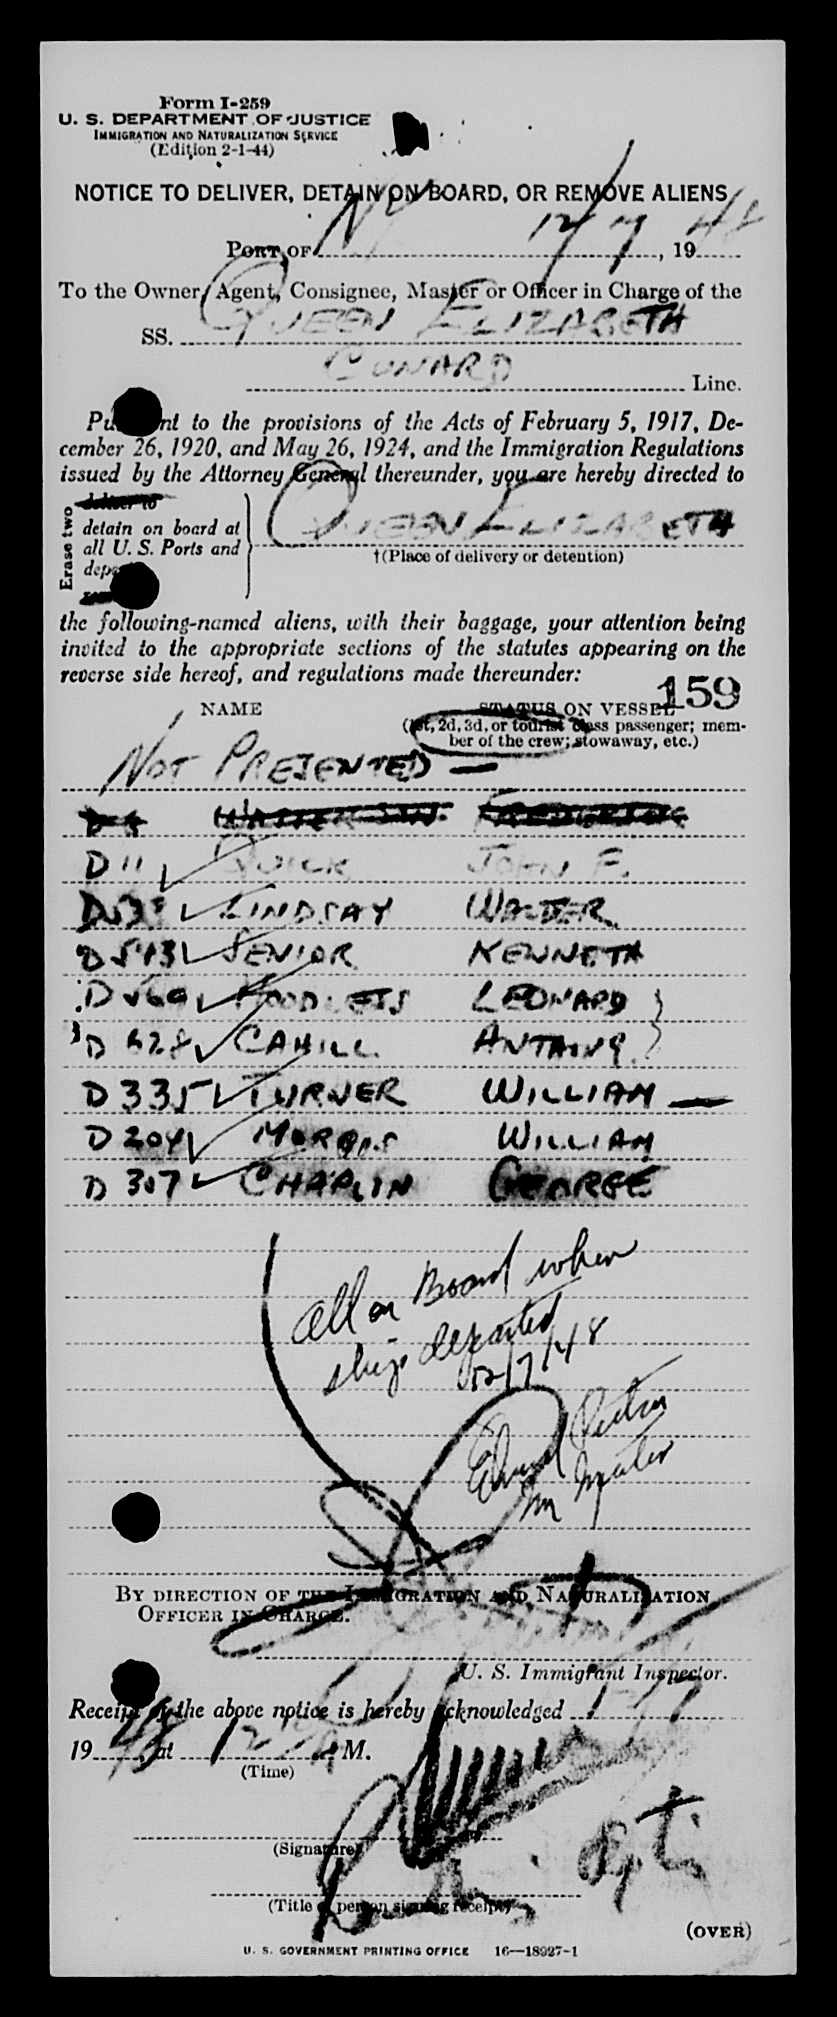 Form I-259
U. S. DEPARTMENT OF JUSTICE
IMMIGRATION AND NATURALIZATION SERVICE
(Edition 2-1-44)
NOTICE TO DELIVER, DETAIN ON BOARD, OR REMOVE ALIENS
PORT OF NY 12/7, 1948
To the Owner, Agent, Consignee, Master or Officer in Charge of the
SS. QUEEN ELIZABETH
CUNARD Line.
Pu nt to the provisions of the Acts of February 5, 1917, De-
cember 26, 1920, and May 26, 1924, and the Immigration Regulations
issued by the Attorney General thereunder, you are hereby directed to
Erase two
deliver to
detain on board at
all U. S. Ports and
QUEEN ELIZABETH
†(Place of delivery or detention)
the following-named aliens, with their baggage, your attention being
invited to the appropriate sections of the statutes appearing on the
reverse side hereof, and regulations made thereunder:
159
NAME STATUS ON VESSEL
(1st, 2d, 3d, or tourist class passenger; mem-
ber of the crew; stowaway, etc.)
NOT PRESENTED —
D 11 QUICK JOHN F.
LINDSAY WALTER
D 543 SENIOR KENNETH
D 560 LEONARD
D 628 CAHILL ANTHONY
D 335 TURNER WILLIAM —
D 204 MORRIS WILLIAM
D 307 CHAPLIN GEORGE
All on Board when
ship departed
12/7/48
BY DIRECTION OF THE IMMIGRATION AND NATURALIZATION
OFFICER IN CHARGE.
U. S. Immigrant Inspector.
Receipt of the above notice is hereby acknowledged
1948, at 12 M.
(Time)
(Signature)
(Title of person signing receipt)
(OVER)
U. S. GOVERNMENT PRINTING OFFICE 16—18927-1